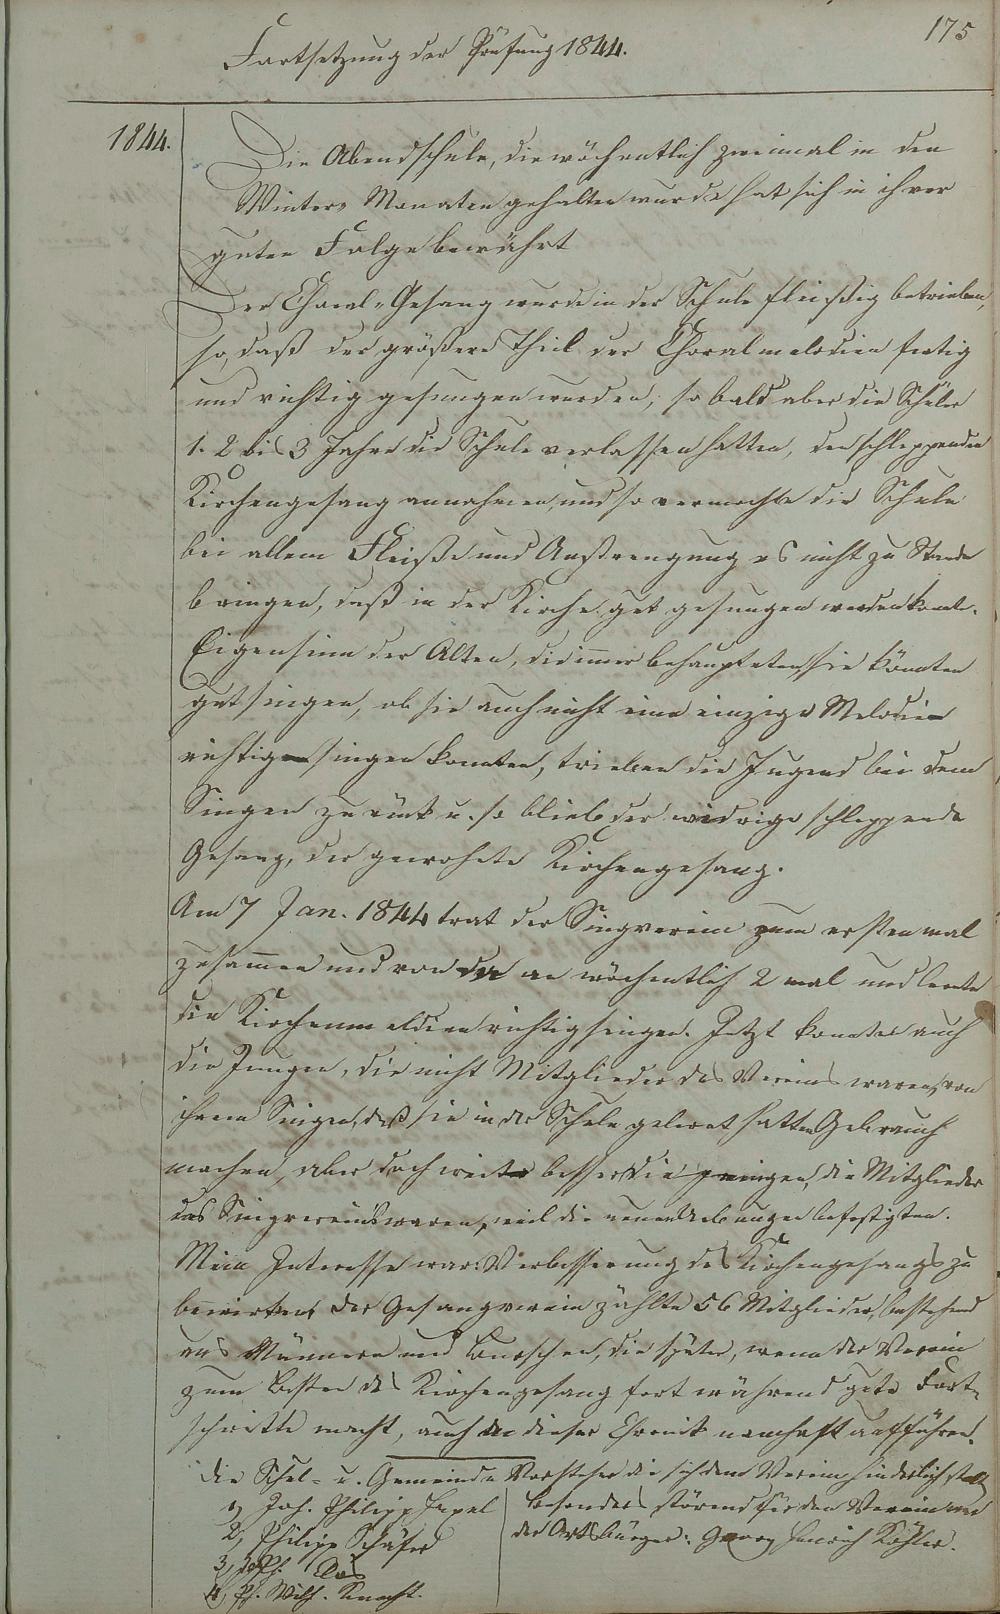 175
Fortsetzung der Prüfung 1844.
1844.
Die Abendschule, die wöchentlich zweimal in den
Winter-Monaten gehalten wurde hat sich in ihrer
guten Folge bewährt
Der Choral-Gesang wurde in der Schule fleißig betrieben,
so, daß der größere Theil der Choralmelodien fertig
und richtig gesungen wurden, so bald aber die Schüler
1. 2 bis 3 Jahre die Schule verlassen hatten, den schleppenden
Kirchengesang annahmen, und so vermochte die Schule
bei allem Fleiße und Anstrengung es nicht zu Stande
bringen, daß in der Kirche gut gesungen werden konte.
Eigensinn der Alten, die immer behaupteten, sie könnten
gut singen, ob sie auch nicht eine einzige Melodie
richtig singen konnten, trieben die Jugend bei dem
Singen zurück u. so blieb der widrige schleppende
Gesang, der gewohnte Kirchengesang.
Am 7 Jan. 1844 trat der Singverein zum erstenmal
zusammen und von da an wöchentlich 2 mal und lernte
die Kirchenmelodien richtig singen. Jetzt konnten auch
die Jungen, die nicht Mitglieder des Vereins waren, von
ihrem Singen, daß sie in der Schule gelernt hatten Gebrauch
machen, aber doch weit besser die jenigen, die Mitglieder
des Singvereins waren, weil die neuen Uebungen befestigten.
Mein Interesse war: Verbesserung des Kirchengesangs zu
bewirken, der Gesangverein zählte 56 Mitglieder, bestehend
aus Männern und Burschen, die später, wenn der Verein
zum Besten des Kirchengesang fort während gute Fort-
schritte macht, auch in dieser Chronik namhaft aufführen.
Die Schul- u. Gemeinde Vorsteher die sich dem Verein hinderlich stellten
1, Joh. Philipp
2, Philipp Schäfer
3, Jos Ph.
4, Ph. Wilh. Knecht.
besonders störend für den Verein war
der Ortsbürger: Georg Heinrich Köhler.